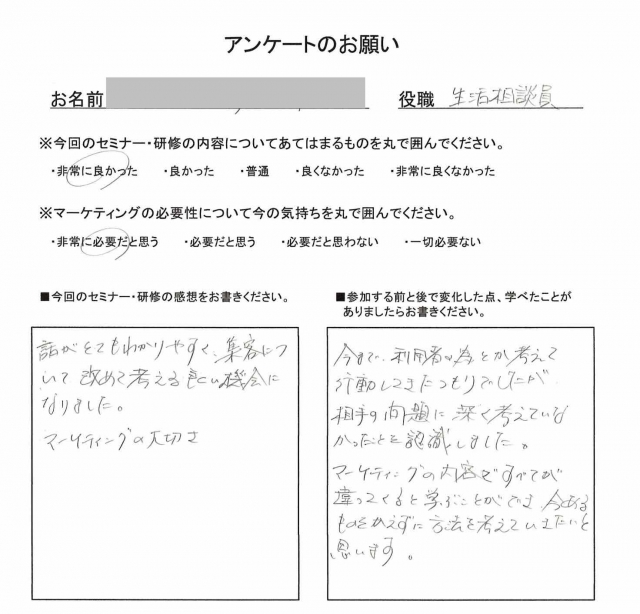 アンケートのお願い
お名前 役職 生活相談員
※今回のセミナー・研修の内容についてあてはまるものを丸で囲んでください。
・非常に良かった ・良かった ・普通 ・良くなかった ・非常に良くなかった
※マーケティングの必要性について今の気持ちを丸で囲んでください。
・非常に必要だと思う ・必要だと思う ・必要だと思わない ・一切必要ない
■今回のセミナー・研修の感想をお書きください。
話がとてもわかりやすく、集客につ
いて改めて考える良い機会に
なりました。
マーケティングの大切さ
■参加する前と後で変化した点、学べたことが
ありましたらお書きください。
今まで、利用者の為とか考えて
行動してきたつもりでしたが
相手の問題に深く考えていな
かったことを認識しました。
マーケティングの内容ですべてが
違ってくると学ぶことができ 今ある
ものをかえずに方法を考えていきたいと
思います。